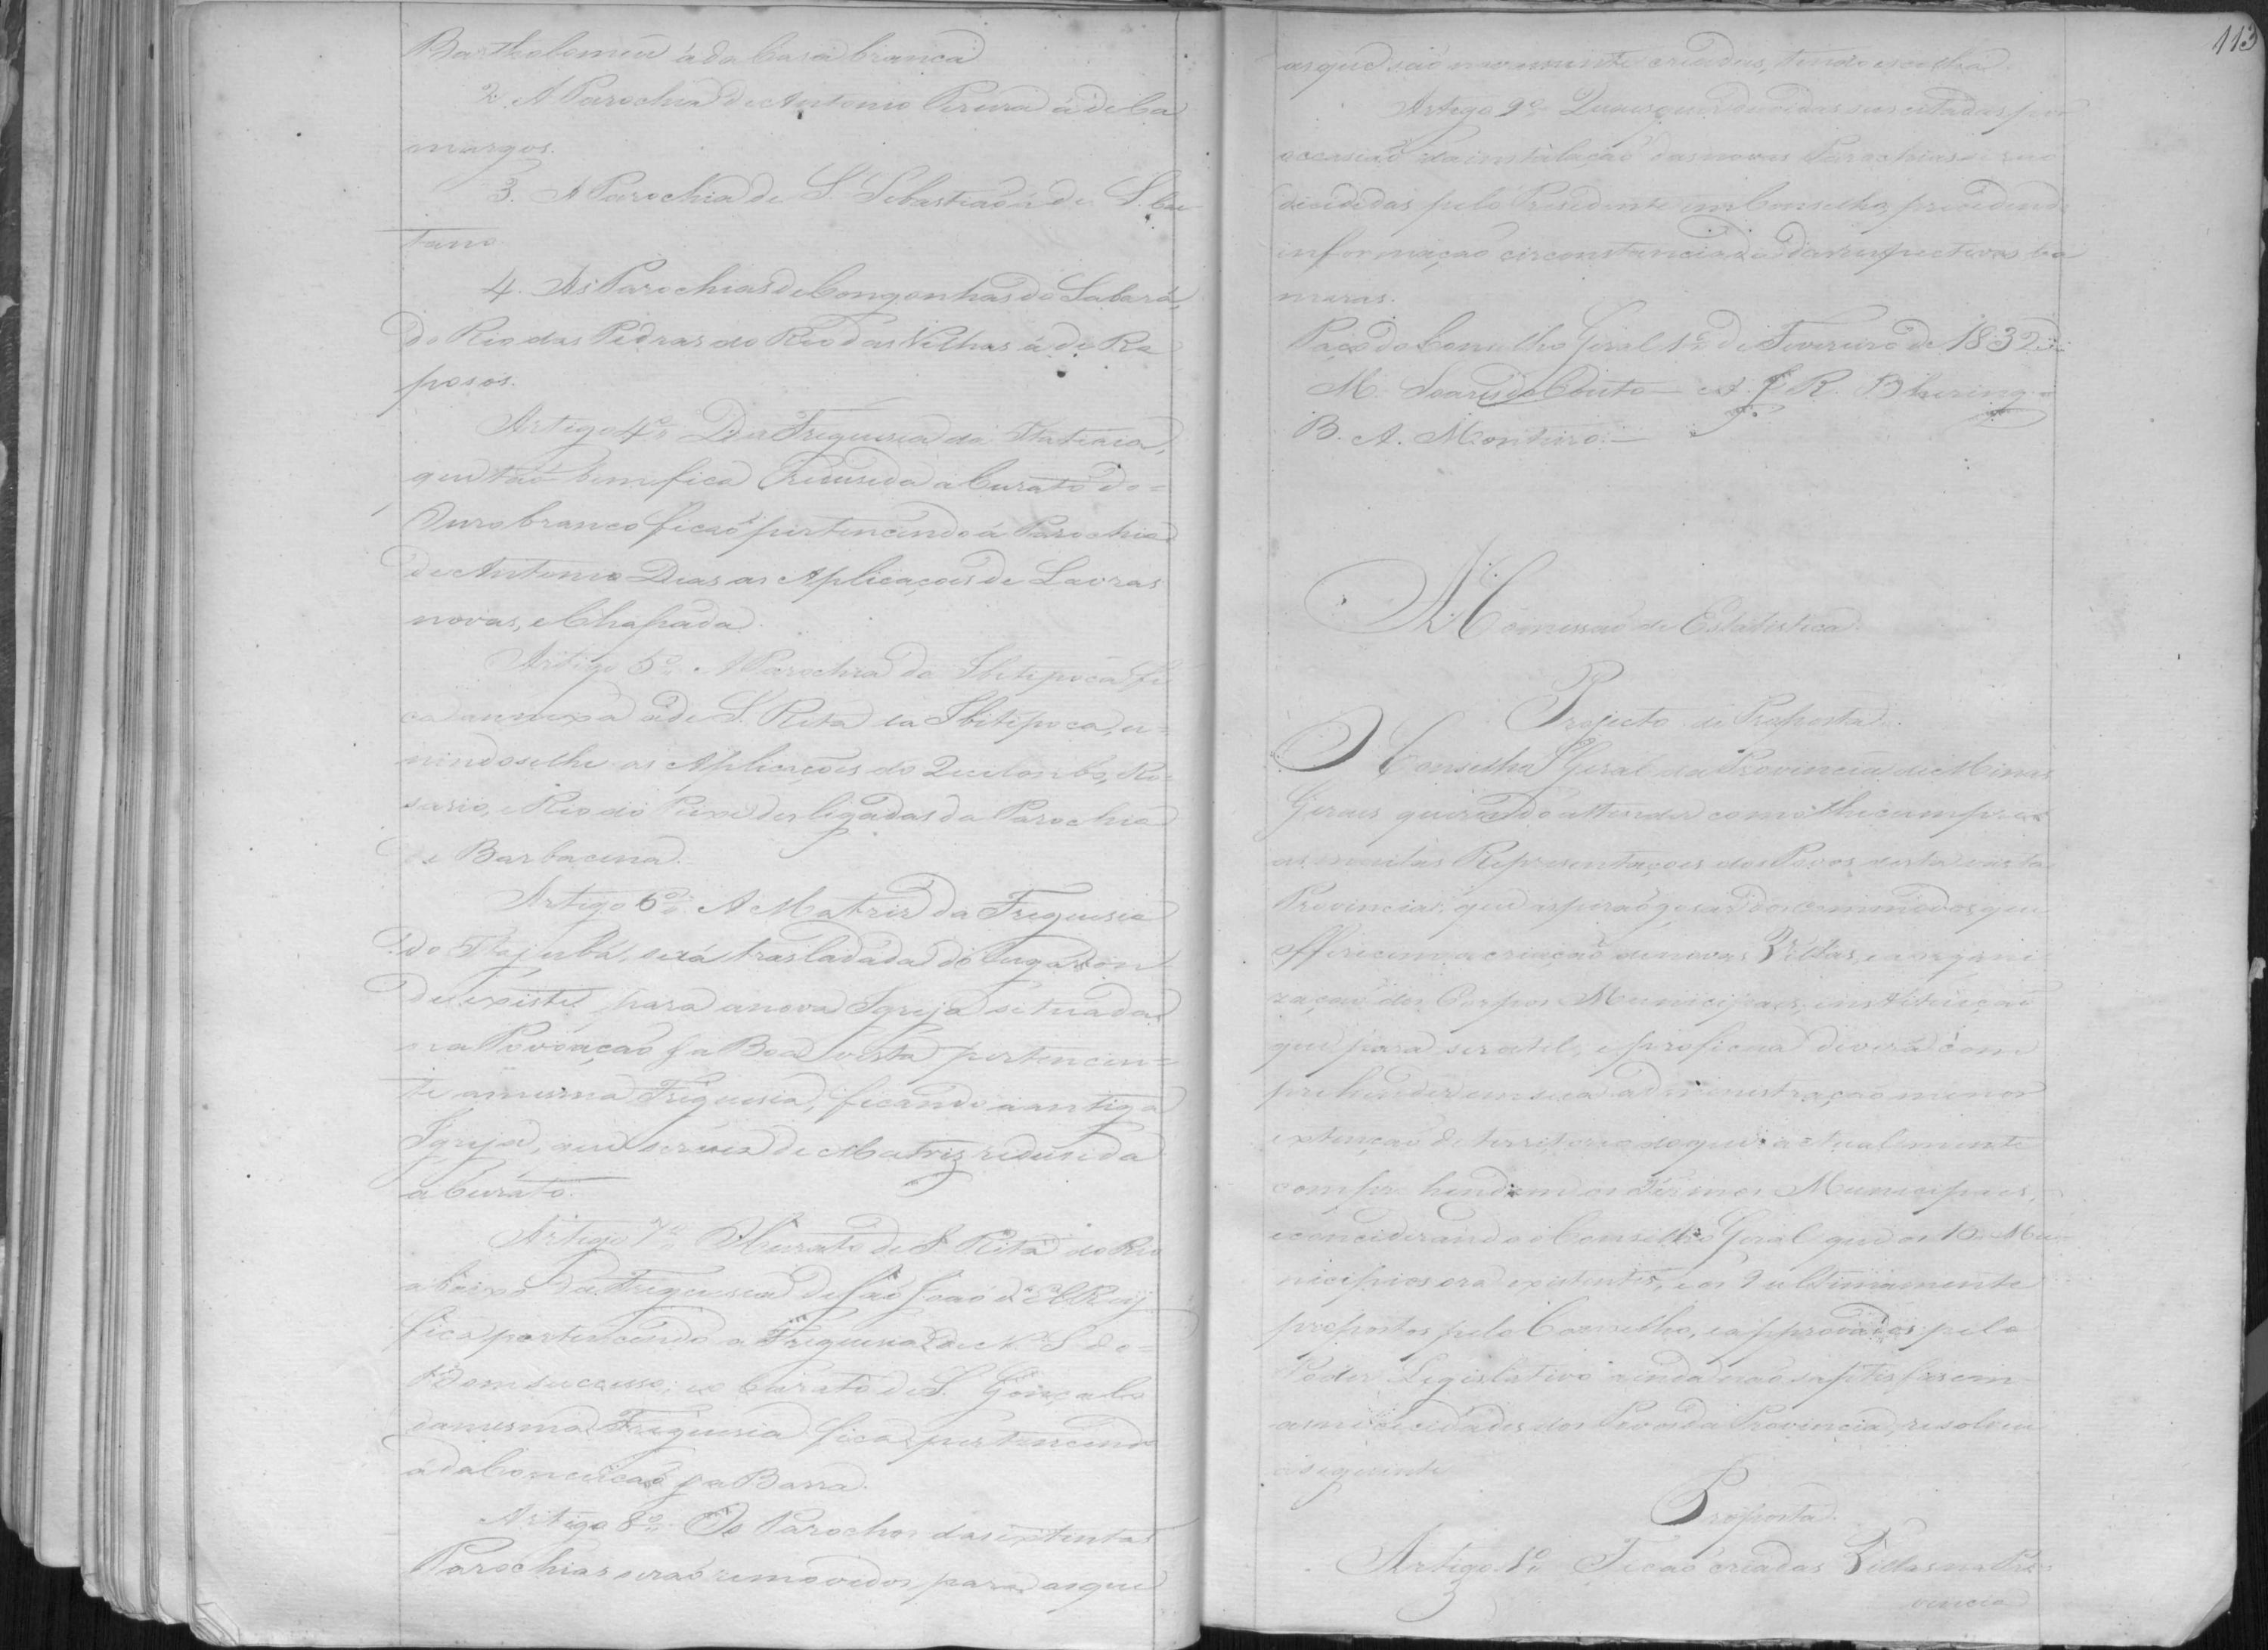 Bartholomeu á da Casa branca
2. A Parochia de Antonio Pereira á de Ca
margos.
3. A Parochia de S. Sebastiaõ á de S. Cae
tano
4. As Parochias de Congonhas do Sabará,
do Rio das Pedras do Rio das Velhas á de Ra
posos.
Artigo 4º Da Freguesia da Itatiaia,
que taõ bem fica redusida a Curato do =
Ouro branco ficaõ pertencendo á Parochia
de Antonio Dias as Aplicações de Lavras
novas, e Chapada.
Artigo 5º A Parochia do Ibitipoca fi
ca annexa á de S. Rita da Ibitipoca, u=
nindoselhe as Aplicações do Quilombo, Ro=
sario, e Rio do Peixe desligadas da Parochia
de Barbacena.
Artigo 6º A Matriz da Freguesia
do Itajubá, será trasladada do lugar on
de existe para a nova Igreja situada
na Povoaçaõ da Boa vista pertencen=
te a mesma Freguesia, ficando a antiga
Igreja, que servia de Matriz redusida
a Curato.
Artigo 7º O Curato de S. Rita do Rio
abaixo da Freguesia de São João d'El Rey
fica pertencendo a Freguesia de N. S. do =
Bom successo; e o Curato de S. Gonçalo
da mesma Freguesia fica pertencendo
á da Conceiçaõ da Barra.
Artigo 8º Os Parochos das extintas
Parochias seraõ removidos para as que
113
as que saõ novamente criadas, tendo escolha.
Artigo 9º Quaesquer duvidas suscitadas por
occasiaõ da instalaçaõ das novas Parochias seraõ
decididas pelo Presidente em Conselho, precedendo
informaçaõ circonstanciada das respectivas Ca
maras.
Paço do Conselho Geral 1º de Fevereiro de 1832
M. Soares do Couto — A. J. R. Bhering =
B. A. Monteiro. —
A Comissaõ de Estatistica.
Projecto de Proposta.
O Conselho Geral da Provincia de Minas
Geraes querendo attender como lhe cumpre
as muitas Representações dos Povos desta vasta
Provincia, que aspiraõ gosar dos commodos que
offerecem a criaçaõ de novas Villas, e a organi
zaçaõ dos Corpos Municipaes, instituiçaõ
que para ser util, e proficua deverá com
prehender em sua administraçaõ menor
extençaõ de territorio do que actualmente
comprehendem os Termos Municipaes,
e conciderando o Conselho Geral que os 16 Mu
nicipios ora existentes, e os 9 ultimamente
propostos pelo Conselho, e approvados pelo
Poder Legislativo ainda naõ saptisfasem
as necicidades dos Povos da Provincia, resolveu
a seguinte
Proposta.
Artigo 1º Ficaõ criadas Villas na Pro
vincia